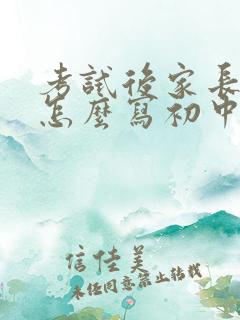 考試後家長
怎麼寫初中
信佳美
未经同意禁止转载